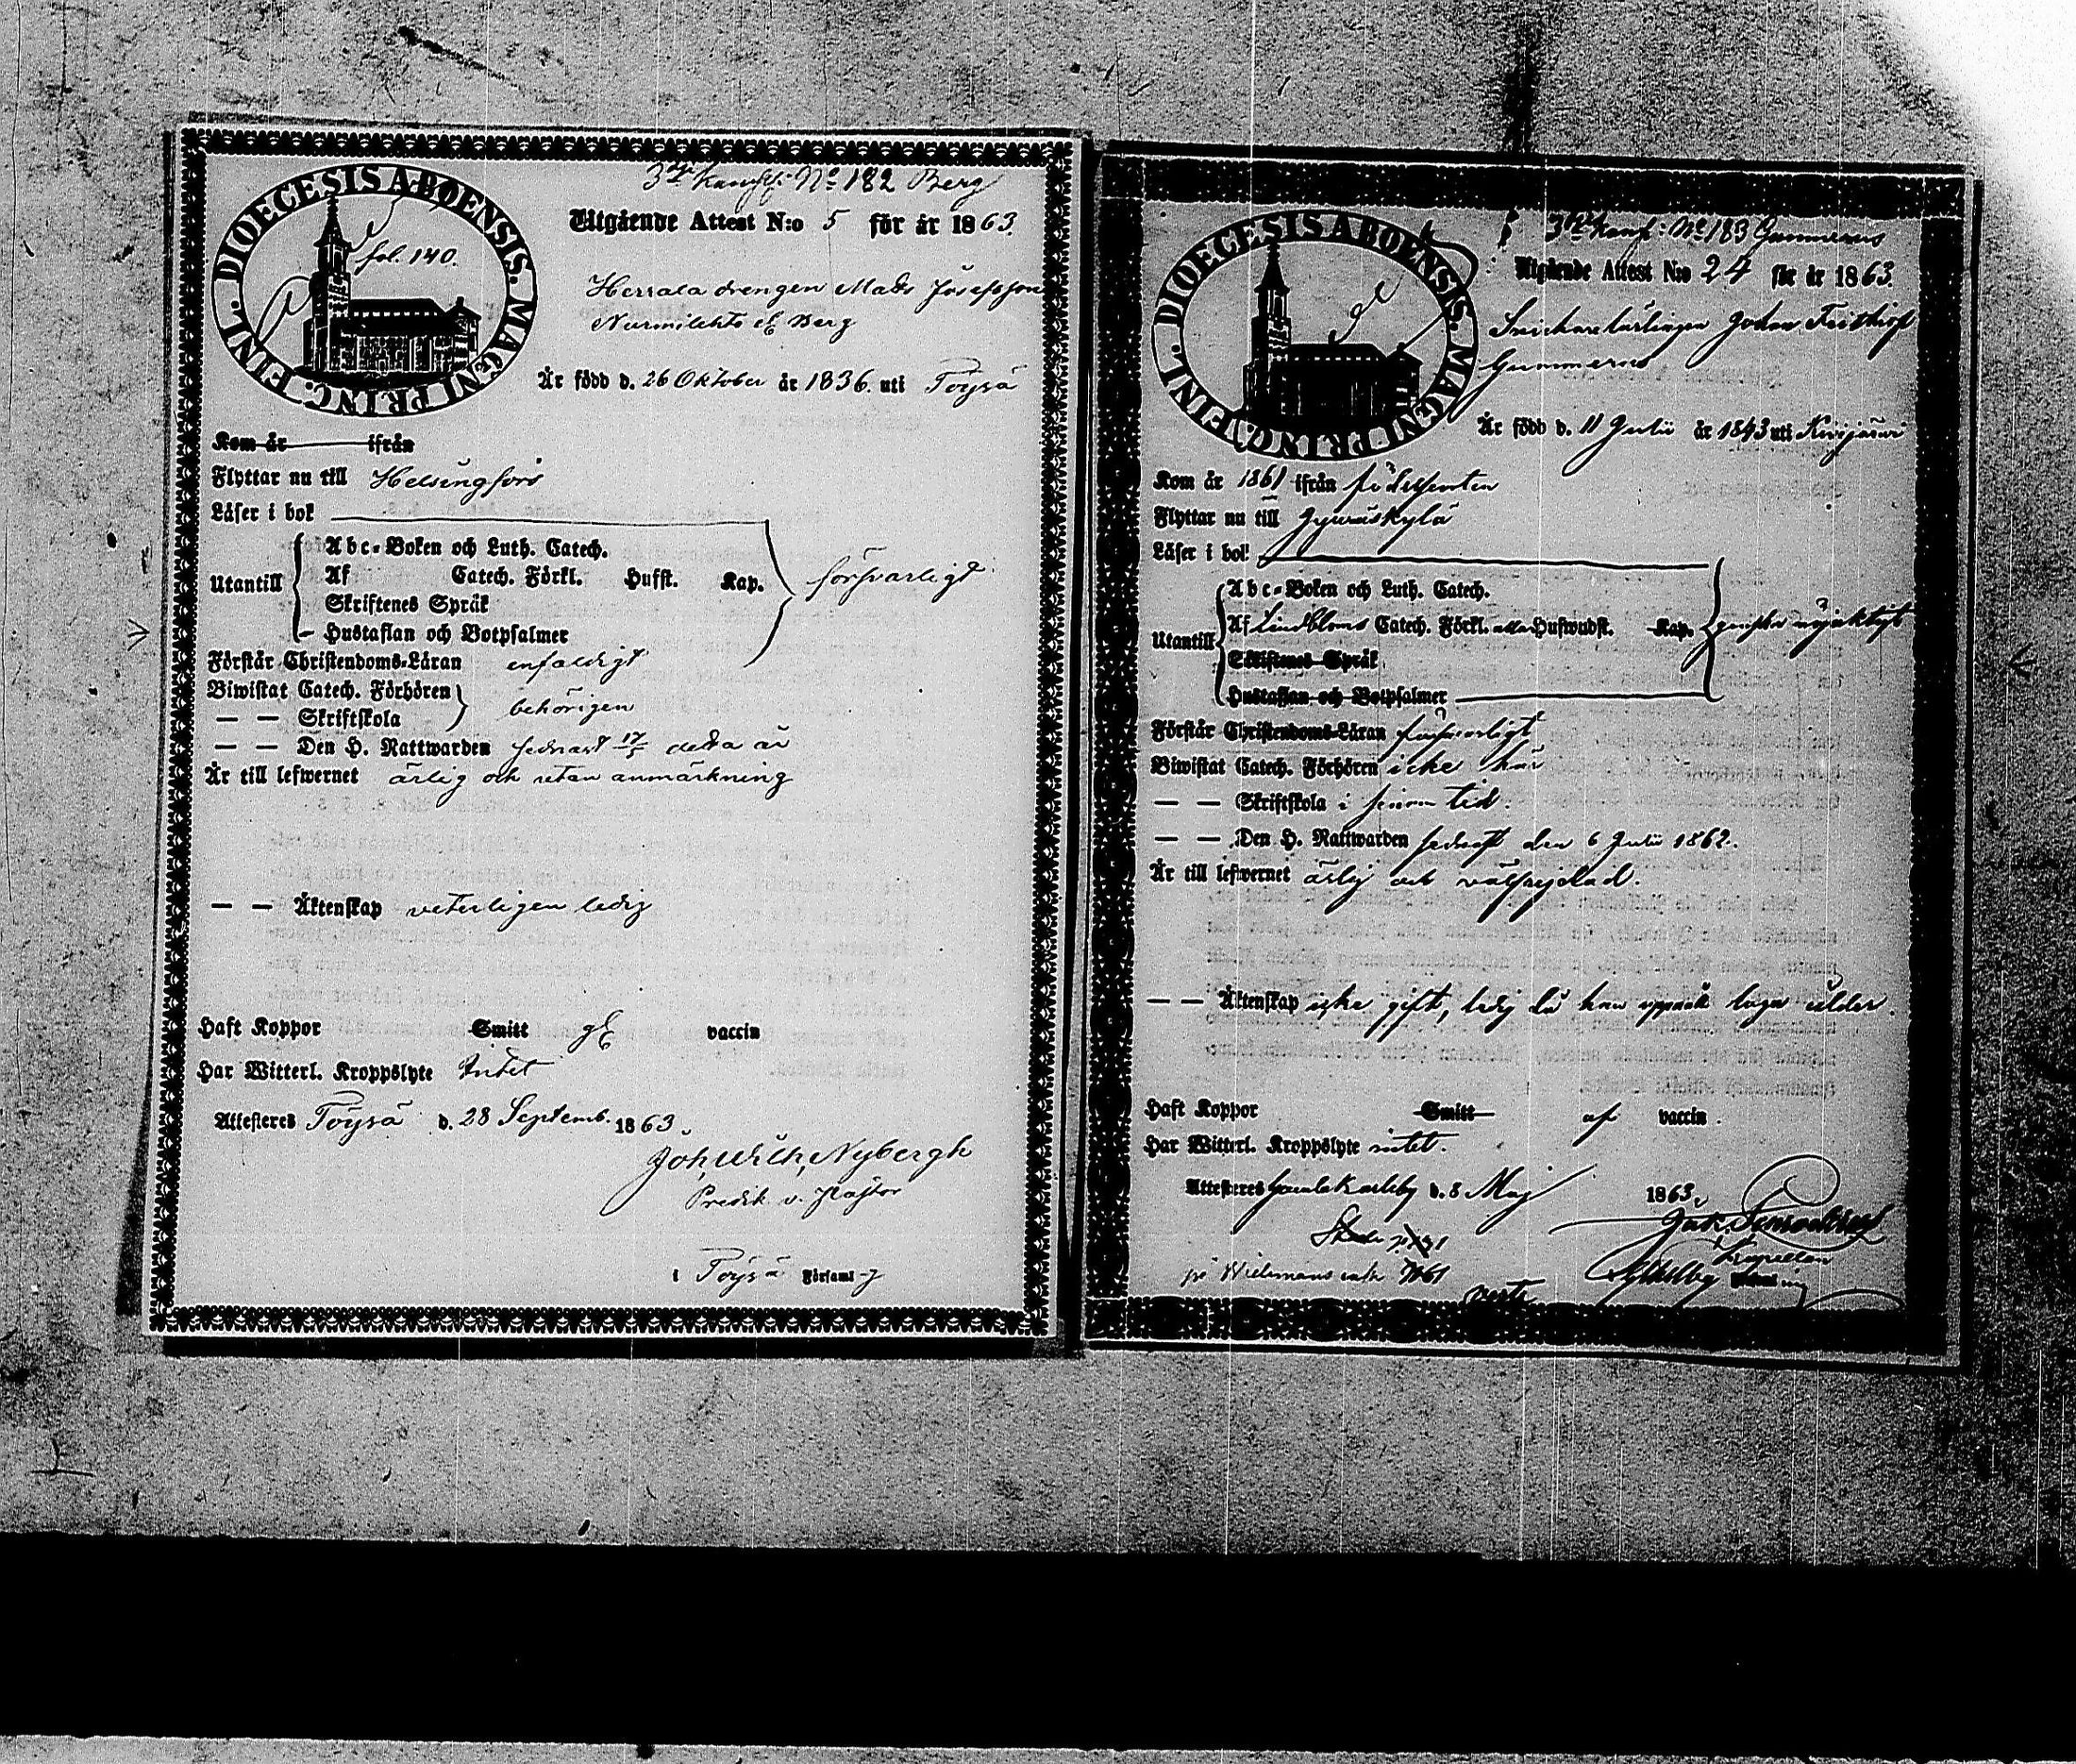 DIOECESIS ABOENSIS. MAGNI PRINC. FINL.
fol. 140.
3dje Kansl: No 182 Berg
Utgående Attest N:o 5 för år 1863.
Herrala drengen Mats Josefsson
Nurmilehto el Berg
Är född d. 26 Oktober år 1836. uti Töysä
Kom år ifrån
Flyttar nu till Helsingfors
Läser i bok
Abc-Boken och Luth. Catech.
Utantill Af Catech. Förkl. Hufst. Kap. försvarligt
Skriftenes Språk
Hustaflan och Botpsalmer
Förstår Christendoms-Läran enfaldigt
Biwistat Catech. Förhören
— — Skriftskola behörigen
— — Den H. Nattwarden sednast 17/5 detta år
Är till lefwernet ärlig och utan anmärkning
— — Äktenskap veterligen ledig
Haft Koppor Smitt vaccin
Har Witterl. Kroppslyte Intet
Attesteras Töysä d. 28 Septemb. 1863.
Joh, Wilh, Nybergh
Predik. v. Pastor
i Töysä Församl
DIOECESIS ABOENSIS. MAGNI PRINC. FINL.
No 183 Gummerus
Utgående Attest N:o 24 för år 1863.
Snickare lärlingen Johan Frithiof
Gummerus
Är född d. 11 Julii år 1843 uti Kivijärvi
Kom år 1861 ifrån födelseorten
Flyttar nu till Jyväskylä
Läser i bok
Abc-Boken och Luth. Catech.
Utantill Af Lindbloms Catech. Förkl. alla Hufwudst. Kap. ganska nöjaktigt
Skriftenes Språk
Hustaflan och Botpsalmer
Förstår Christendoms-Läran försvarligt
Biwistat Catech. Förhören icke här
— — Skriftskola i sinom tid.
— — Den H. Nattwarden sednast den 6 Julii 1862.
Är till lefwernet ärlig och välfrejdad.
— — Äktenskap icke gift, ledig då han uppnått laga ålder.
Haft Koppor Smitt af vaccin.
Har Witterl. Kroppslyte intet.
Attesteras Gamlakarleby d. 8 Maj 1863.
Kapellan
verte